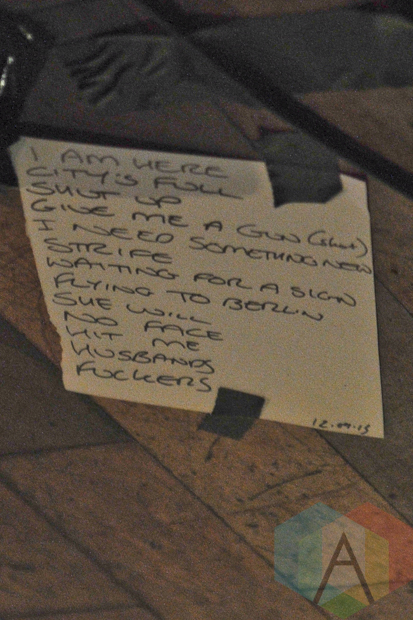 I AM HERE
CITY'S FULL
SHUT UP
GIVE ME A GUN (short)
I NEED SOMETHING NEW
STRIFE
WAITING FOR A SIGN
FLYING TO BERLIN
SHE WILL
NO FACE
HIT ME
HUSBANDS
FUCKERS
A